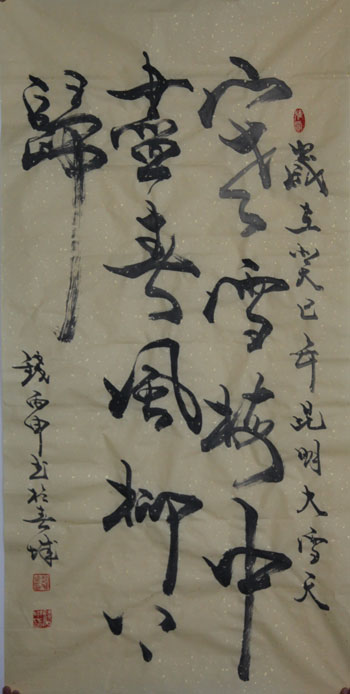 歲在癸巳年昆明大雪天
寒雪梅中
盡春風柳上
歸
錢丙申書於春城